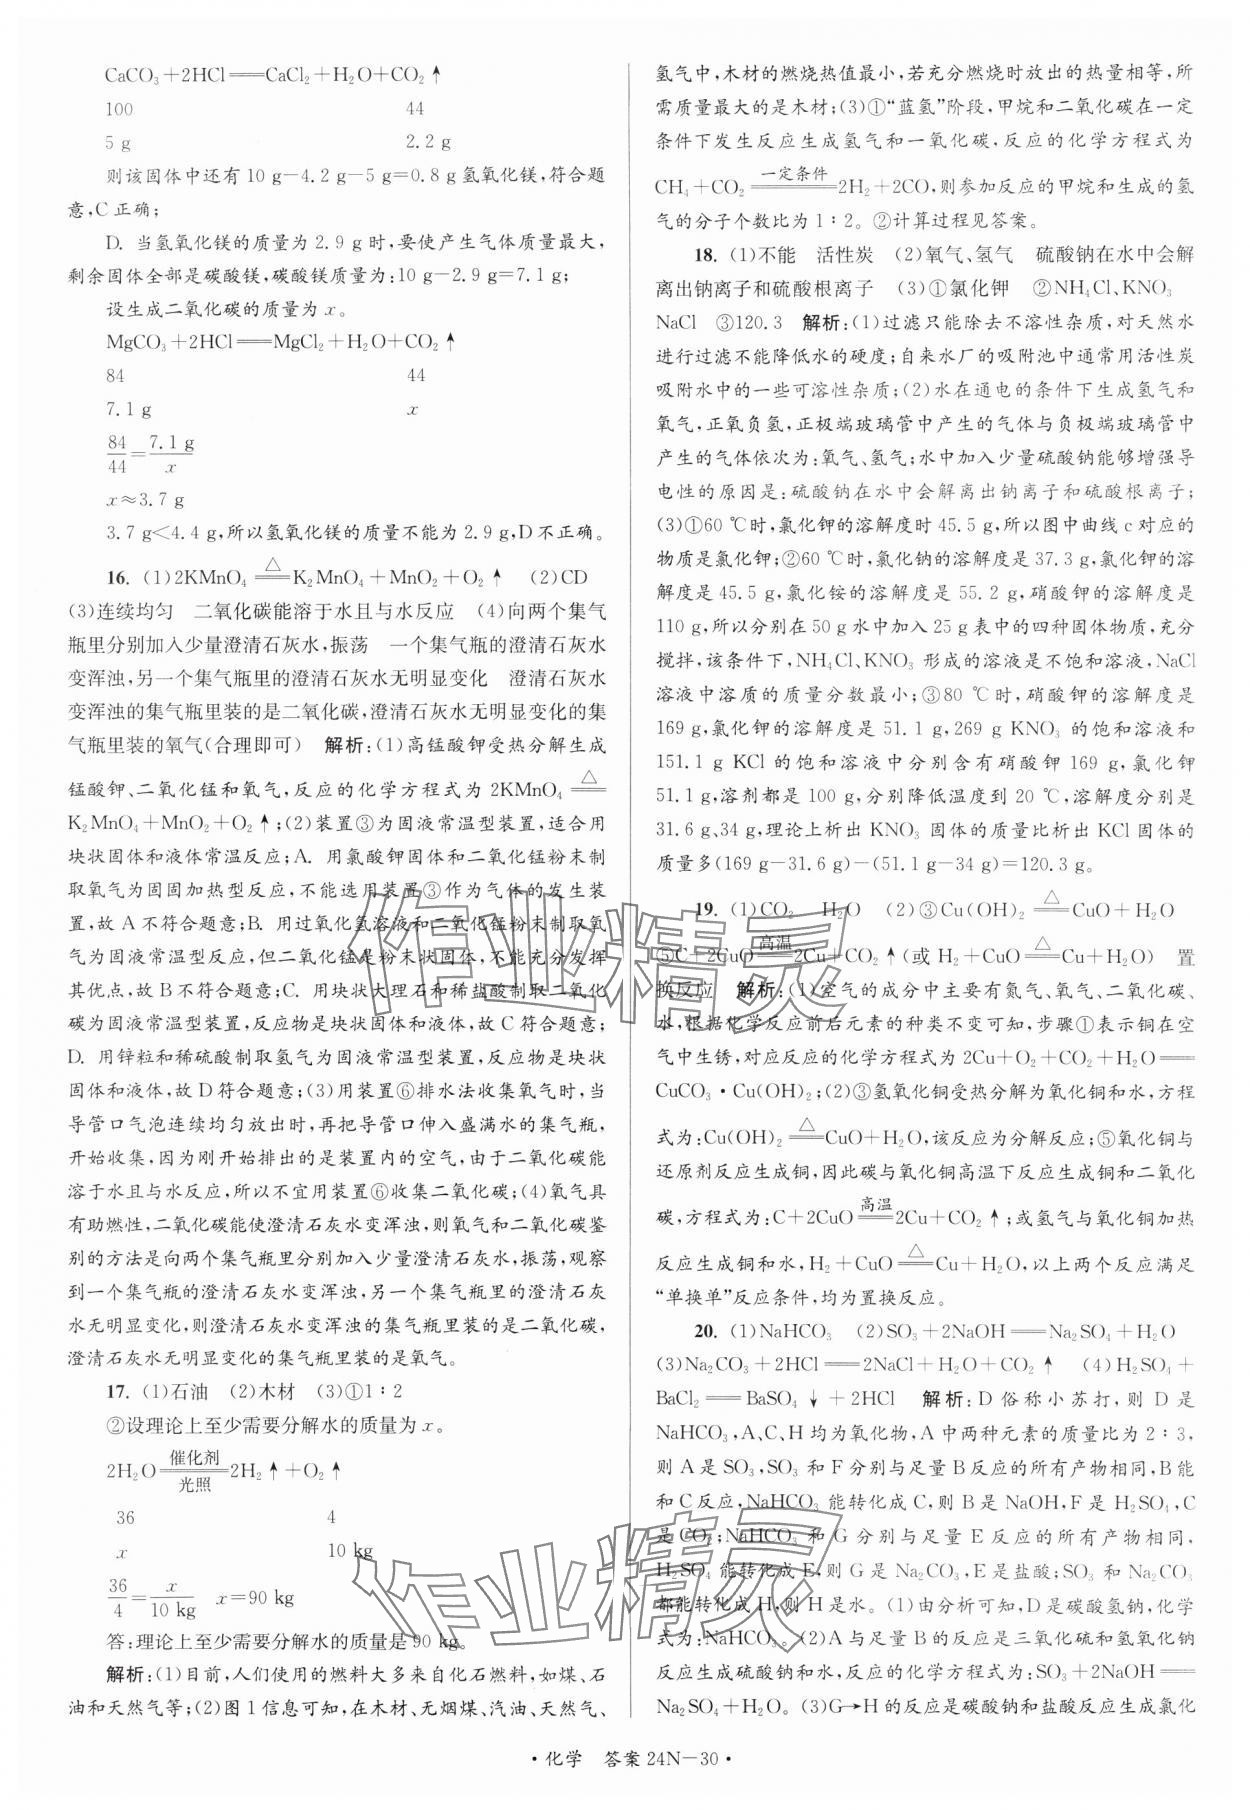 CaCO₃+2HCl══CaCl₂+H₂O+CO₂↑
100 44
5 g 2.2 g
则该固体中还有10 g-4.2 g-5 g=0.8 g氢氧化镁,符合题
意,C正确;
D. 当氢氧化镁的质量为2.9 g时,要使产生气体质量最大,
剩余固体全部是碳酸镁,碳酸镁质量为:10 g-2.9 g=7.1 g;
设生成二氧化碳的质量为x。
MgCO₃+2HCl══MgCl₂+H₂O+CO₂↑
84 44
7.1 g x
84/44=7.1 g/x
x≈3.7 g
3.7 g<4.4 g,所以氢氧化镁的质量不能为2.9 g,D不正确。
16. (1)2KMnO₄ ══△ K₂MnO₄+MnO₂+O₂↑ (2)CD
(3)连续均匀 二氧化碳能溶于水且与水反应 (4)向两个集气
瓶里分别加入少量澄清石灰水,振荡 一个集气瓶的澄清石灰水
变浑浊,另一个集气瓶里的澄清石灰水无明显变化 澄清石灰水
变浑浊的集气瓶里装的是二氧化碳,澄清石灰水无明显变化的集
气瓶里装的氧气(合理即可) 解析:(1)高锰酸钾受热分解生成
锰酸钾、二氧化锰和氧气,反应的化学方程式为2KMnO₄ ══△
K₂MnO₄+MnO₂+O₂↑;(2)装置③为固液常温型装置,适合用
块状固体和液体常温反应;A. 用氯酸钾固体和二氧化锰粉末制
取氧气为固固加热型反应,不能选用装置③作为气体的发生装
置,故A不符合题意;B. 用过氧化氢溶液和二氧化锰粉末制取氧
气为固液常温型反应,但二氧化锰是粉末状固体,不能充分发挥
其优点,故B不符合题意;C. 用块状大理石和稀盐酸制取二氧化
碳为固液常温型装置,反应物是块状固体和液体,故C符合题意;
D. 用锌粒和稀硫酸制取氢气为固液常温型装置,反应物是块状
固体和液体,故D符合题意;(3)用装置⑥排水法收集氧气时,当
导管口气泡连续均匀放出时,再把导管口伸入盛满水的集气瓶,
开始收集,因为刚开始排出的是装置内的空气,由于二氧化碳能
溶于水且与水反应,所以不宜用装置⑥收集二氧化碳;(4)氧气具
有助燃性,二氧化碳能使澄清石灰水变浑浊,则氧气和二氧化碳鉴
别的方法是向两个集气瓶里分别加入少量澄清石灰水,振荡,观察
到一个集气瓶的澄清石灰水变浑浊,另一个集气瓶里的澄清石灰
水无明显变化,则澄清石灰水变浑浊的集气瓶里装的是二氧化碳,
澄清石灰水无明显变化的集气瓶里装的是氧气。
17. (1)石油 (2)木材 (3)①1∶2
②设理论上至少需要分解水的质量为x。
2H₂O ══催化剂/光照 2H₂↑+O₂↑
36 4
x 10 kg
36/4=x/10 kg x=90 kg
答:理论上至少需要分解水的质量是90 kg。
解析:(1)目前,人们使用的燃料大多来自化石燃料,如煤、石
油和天然气等;(2)图1信息可知,在木材、无烟煤、汽油、天然气、
氢气中,木材的燃烧热值最小,若充分燃烧时放出的热量相等,所
需质量最大的是木材;(3)①“蓝氢”阶段,甲烷和二氧化碳在一定
条件下发生反应生成氢气和一氧化碳,反应的化学方程式为
CH₄+CO₂ ══一定条件 2H₂+2CO,则参加反应的甲烷和生成的氢
气的分子个数比为1∶2。②计算过程见答案。
18. (1)不能 活性炭 (2)氧气、氢气 硫酸钠在水中会解
离出钠离子和硫酸根离子 (3)①氯化钾 ②NH₄Cl、KNO₃
NaCl ③120.3 解析:(1)过滤只能除去不溶性杂质,对天然水
进行过滤不能降低水的硬度;自来水厂的吸附池中通常用活性炭
吸附水中的一些可溶性杂质;(2)水在通电的条件下生成氢气和
氧气,正氧负氢,正极端玻璃管中产生的气体与负极端玻璃管中
产生的气体依次为:氧气、氢气;水中加入少量硫酸钠能够增强导
电性的原因是:硫酸钠在水中会解离出钠离子和硫酸根离子;
(3)①60 ℃时,氯化钾的溶解度时45.5 g,所以图中曲线c对应的
物质是氯化钾;②60 ℃时,氯化钠的溶解度是37.3 g,氯化钾的溶
解度是45.5 g,氯化铵的溶解度是55.2 g,硝酸钾的溶解度是
110 g,所以分别在50 g水中加入25 g表中的四种固体物质,充分
搅拌,该条件下,NH₄Cl、KNO₃形成的溶液是不饱和溶液,NaCl
溶液中溶质的质量分数最小;③80 ℃时,硝酸钾的溶解度是
169 g,氯化钾的溶解度是51.1 g,269 g KNO₃的饱和溶液和
151.1 g KCl的饱和溶液中分别含有硝酸钾169 g,氯化钾
51.1 g,溶剂都是100 g,分别降低温度到20 ℃,溶解度分别是
31.6 g、34 g,理论上析出KNO₃固体的质量比析出KCl固体的
质量多(169 g-31.6 g)-(51.1 g-34 g)=120.3 g。
19. (1)CO₂ H₂O (2)③Cu(OH)₂ ══△ CuO+H₂O
⑤C+2CuO ══高温 2Cu+CO₂↑(或H₂+CuO ══△ Cu+H₂O) 置
换反应 解析:(1)空气的成分中主要有氮气、氧气、二氧化碳、
水,根据化学反应前后元素的种类不变可知,步骤①表示铜在空
气中生锈,对应反应的化学方程式为2Cu+O₂+CO₂+H₂O══
CuCO₃·Cu(OH)₂;(2)③氢氧化铜受热分解为氧化铜和水,方程
式为:Cu(OH)₂ ══△ CuO+H₂O,该反应为分解反应;⑤氧化铜与
还原剂反应生成铜,因此碳与氧化铜高温下反应生成铜和二氧化
碳,方程式为:C+2CuO ══高温 2Cu+CO₂↑;或氢气与氧化铜加热
反应生成铜和水,H₂+CuO ══△ Cu+H₂O,以上两个反应满足
“单换单”反应条件,均为置换反应。
20. (1)NaHCO₃ (2)SO₃+2NaOH══Na₂SO₄+H₂O
(3)Na₂CO₃+2HCl══2NaCl+H₂O+CO₂↑ (4)H₂SO₄+
BaCl₂══BaSO₄↓+2HCl 解析:D俗称小苏打,则D是
NaHCO₃,A、C、H均为氧化物,A中两种元素的质量比为2∶3,
则A是SO₃,SO₃和F分别与足量B反应的所有产物相同,B能
和C反应,NaHCO₃能转化成C,则B是NaOH,F是H₂SO₄,C
是CO₂;NaHCO₃和G分别与足量E反应的所有产物相同,
H₂SO₄能转化成E,则G是Na₂CO₃,E是盐酸;SO₃和Na₂CO₃
都能转化成H,则H是水。(1)由分析可知,D是碳酸氢钠,化学
式为:NaHCO₃。(2)A与B的反应是三氧化硫和氢氧化钠
反应生成硫酸钠和水,反应的化学方程式为:SO₃+2NaOH══
Na₂SO₄+H₂O。(3)G→H的反应是碳酸钠和盐酸反应生成氯化
·化学 答案24N-30·
作业精灵
作业精灵